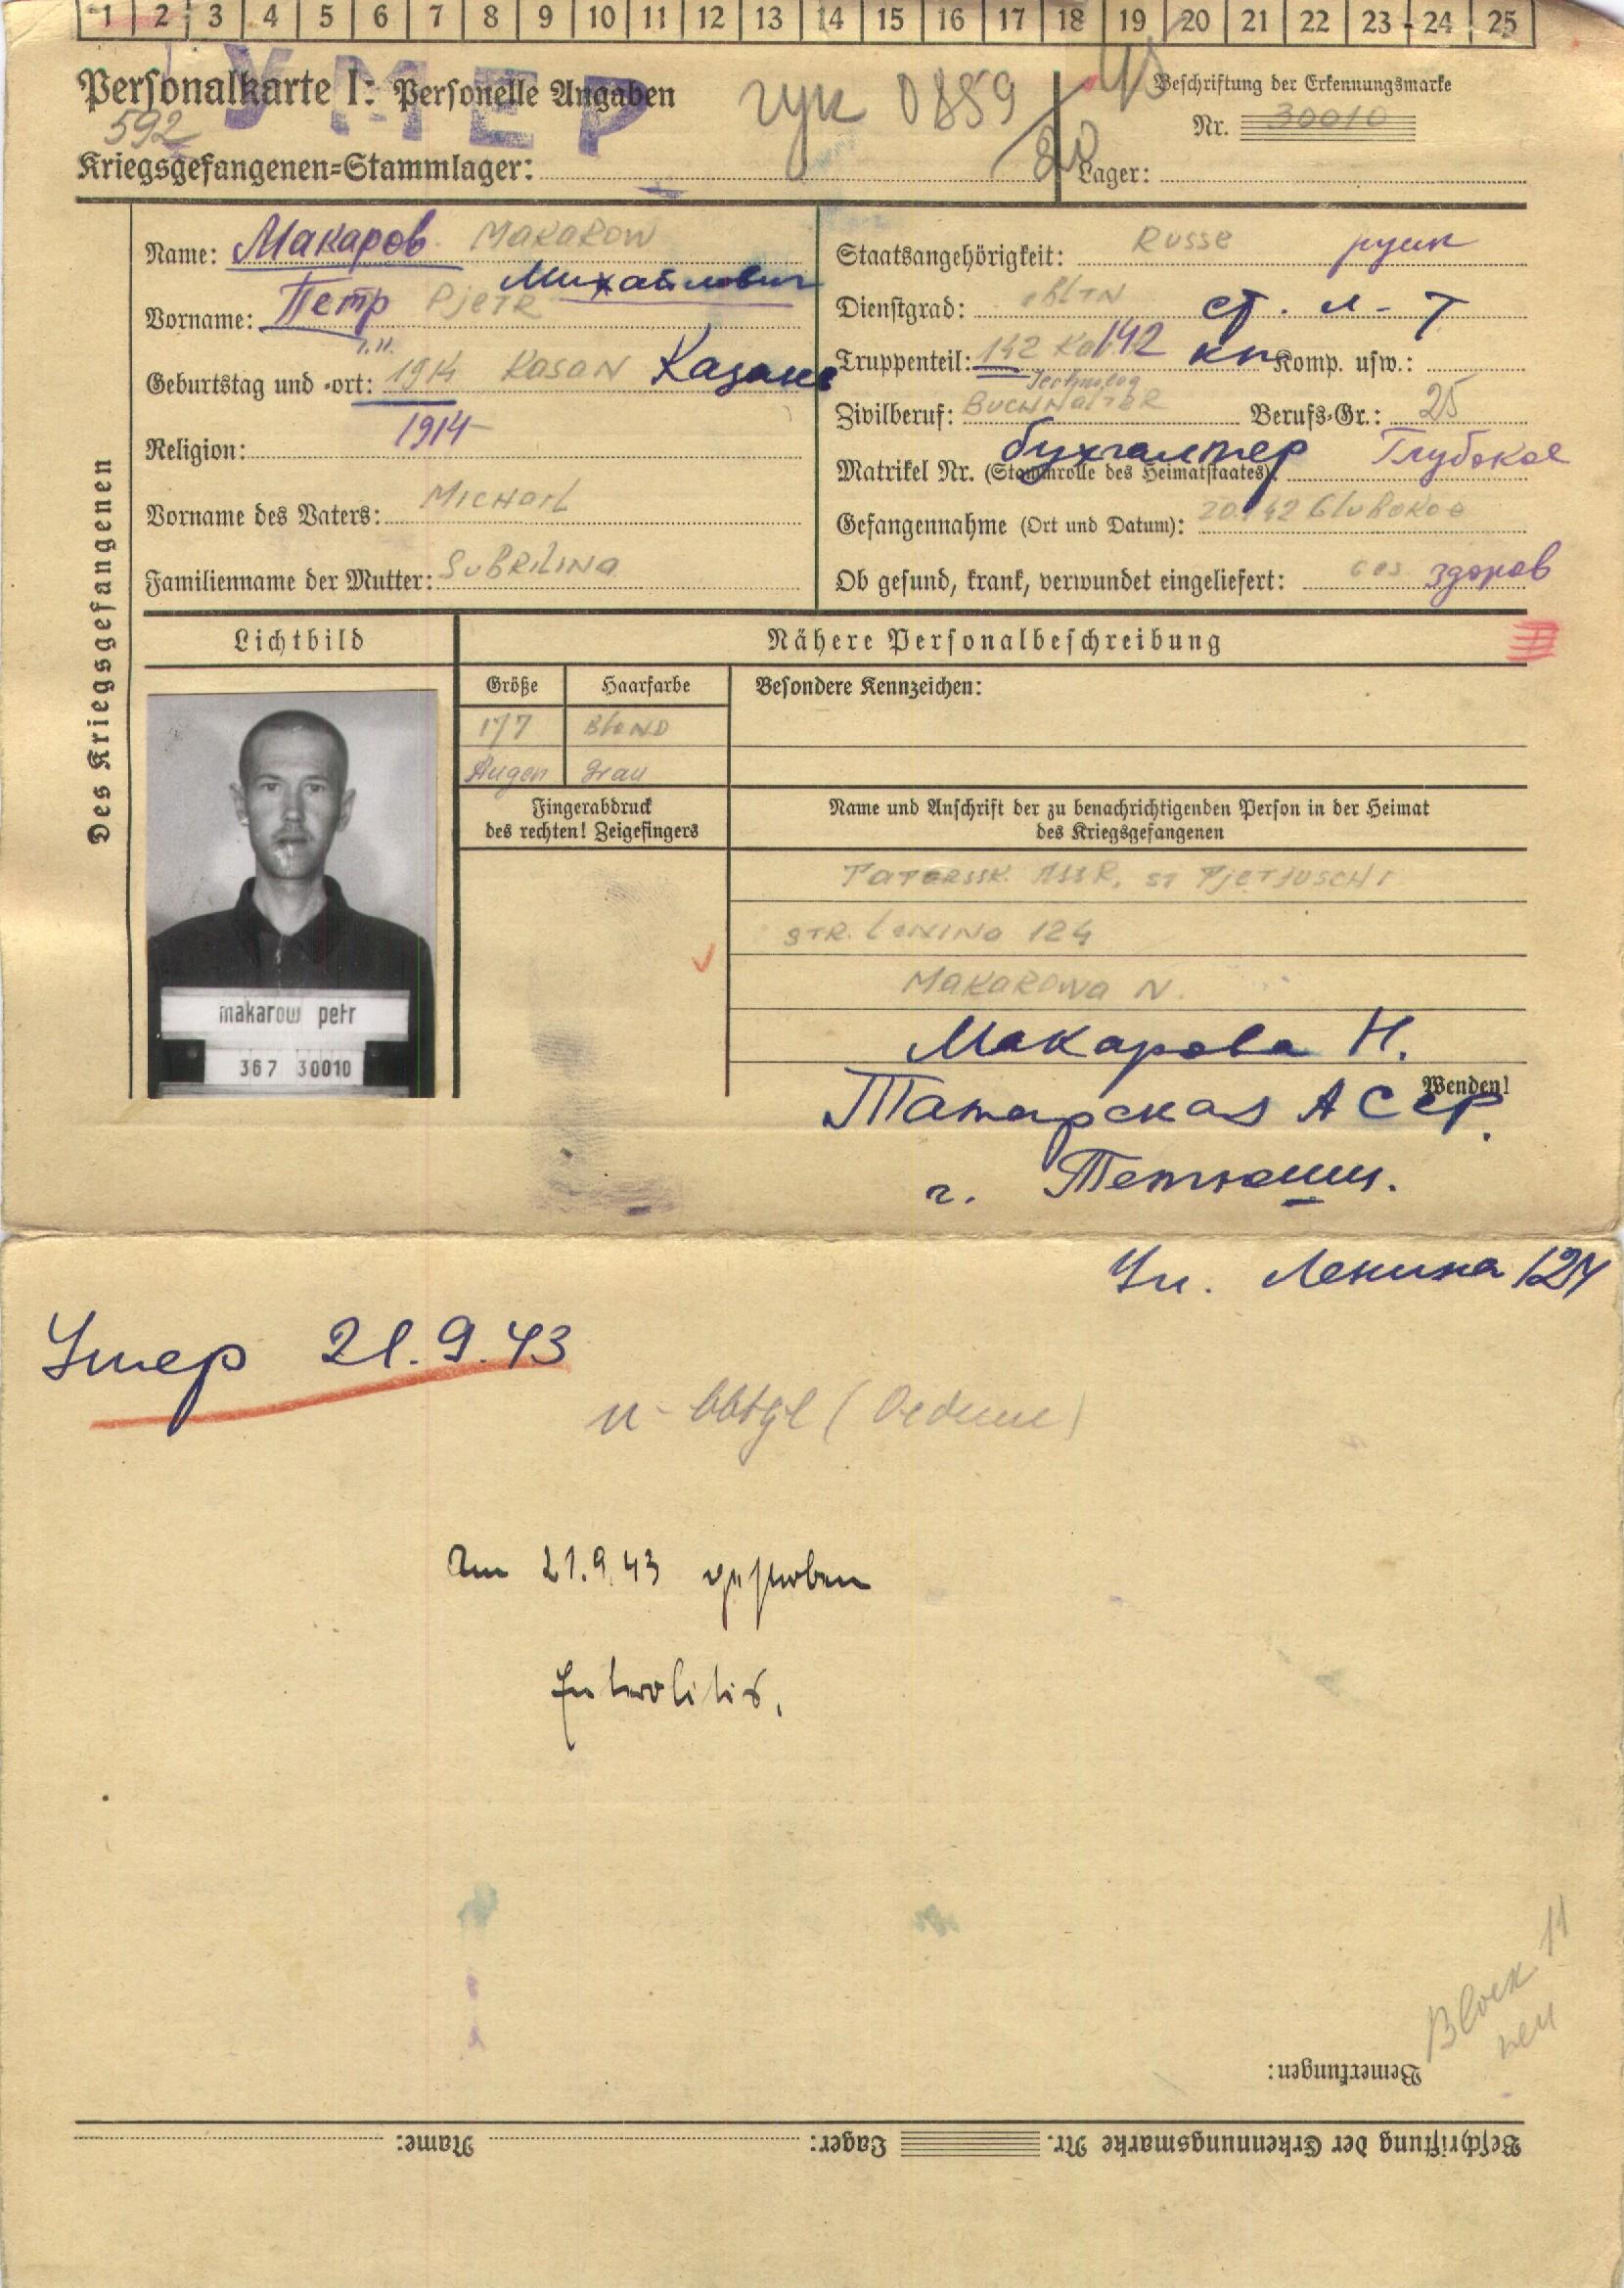 1 2 3 4 5 6 7 8 9 10 11 12 13 14 15 16 17 18 19 20 21 22 23 24 25
УМЕР
Personalkarte I: Personelle Angaben
592
гук 0889
45
80
Beschriftung der Erkennungsmarke
Nr. 30010
Kriegsgefangenen=Stammlager:
Lager:
Des Kriegsgefangenen
Name: Макаров MAKAROW
Михайлович
Vorname: Петр PJETR
Geburtstag und -ort: 1914 KASAN Казань
1914
Religion:
Vorname des Vaters: MICHAIL
Familienname der Mutter: SUBRILINA
Staatsangehörigkeit: RUSSE русск
Dienstgrad: ObLTN ст. л-т
Truppenteil: 142 142 кп Komp. usw.:
Technolog
Zivilberuf: BUCHHALTER Berufs-Gr.: 25
бухгалтер Глубокое
Matrikel Nr. (Stammrolle des Heimatstaates):
Gefangennahme (Ort und Datum): GLUBOKOE
Ob gesund, krank, verwundet eingeliefert: ges здоров
Lichtbild
Nähere Personalbeschreibung
Größe Haarfarbe Besondere Kennzeichen:
177 BLOND
Augen grau
Fingerabdruck
des rechten! Zeigefingers
Name und Anschrift der zu benachrichtigenden Person in der Heimat
des Kriegsgefangenen
TATARSSK. ASSR, ST PJETJUSCHI
STR. LENINA 124
MAKAROWA N.
makarow petr
367 30010
Макарова Н.
Wenden!
Татарская АССР.
г. Тетюши.
Ул. Ленина 124
Умер 21.9.43
(Oedeme)
Am 21.9.43 gestorben
Enterolitis.
Block 11
neu
Bemerkungen:
Beschriftung der Erkennungsmarke Nr. Lager: Name: